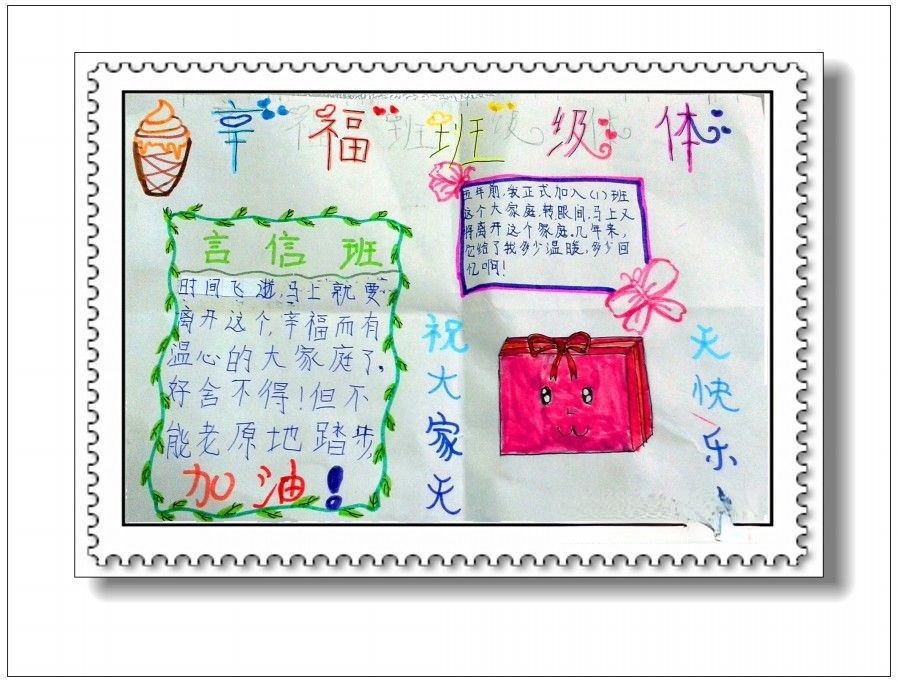 辛福班级体
言信班
时间飞逝,马上就要
离开这个,辛福而有
温心的大家庭了,
好舍不得!但不
能老原地踏步,
加油!
五年前,我正式加入(1)班
这个大家庭.转眼间,马上又
将离开这个家庭.几年来,
它给了我多少温暖,多少回
忆啊!
祝大家天
天快乐!